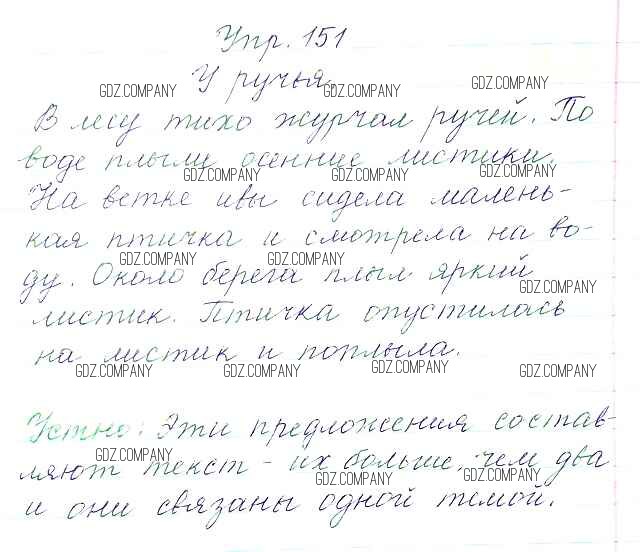 Упр. 151
У ручья.
GDZ.COMPANY GDZ.COMPANY GDZ.COMPANY
В лесу тихо журчал ручей. По
воде плыли осенние листики.
GDZ.COMPANY GDZ.COMPANY GDZ.COMPANY
На ветке ивы сидела малень-
кая птичка и смотрела на во-
GDZ.COMPANY GDZ.COMPANY
ду. Около берега плыл яркий
GDZ.COMPANY
листик. Птичка опустилась
на листик и поплыла.
GDZ.COMPANY GDZ.COMPANY GDZ.COMPANY GDZ.COMPANY
Устно: Эти предложения состав-
GDZ.COMPANY
ляют текст – их больше, чем два
GDZ.COMPANY GDZ.COMPANY
и они связаны одной темой.